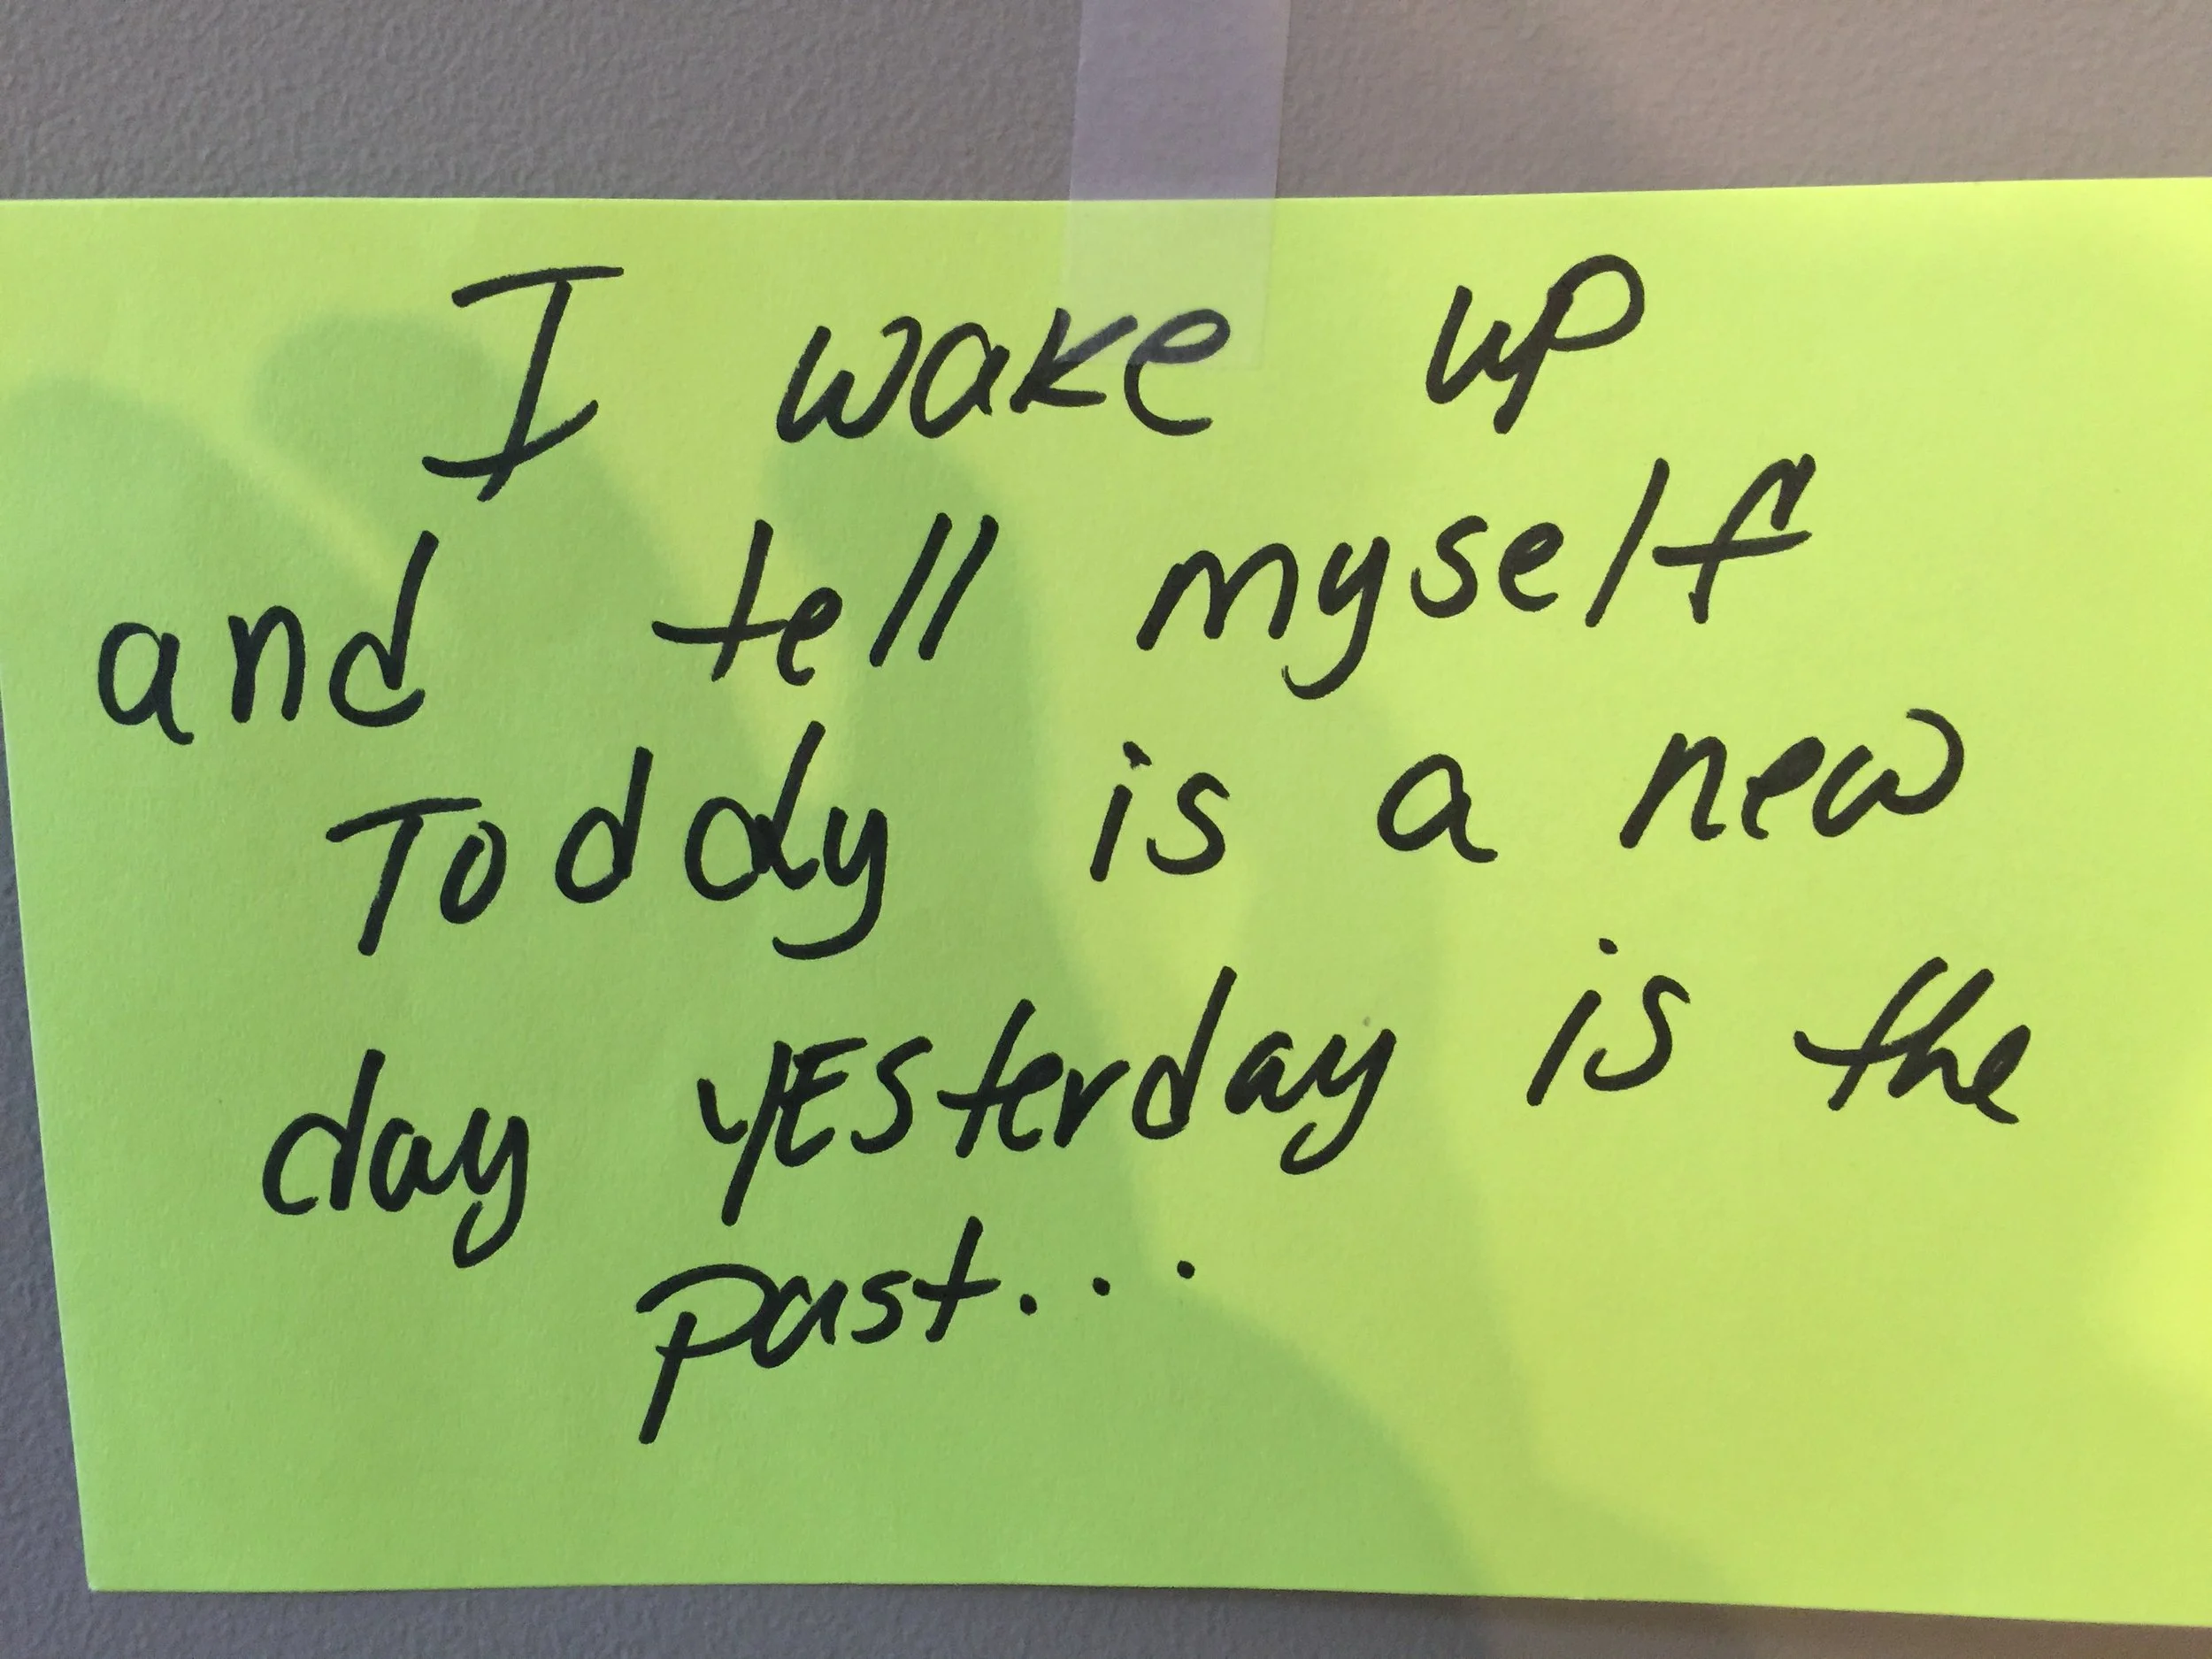 I wake up
and tell myself
Today is a new
day YESterday is the
past...